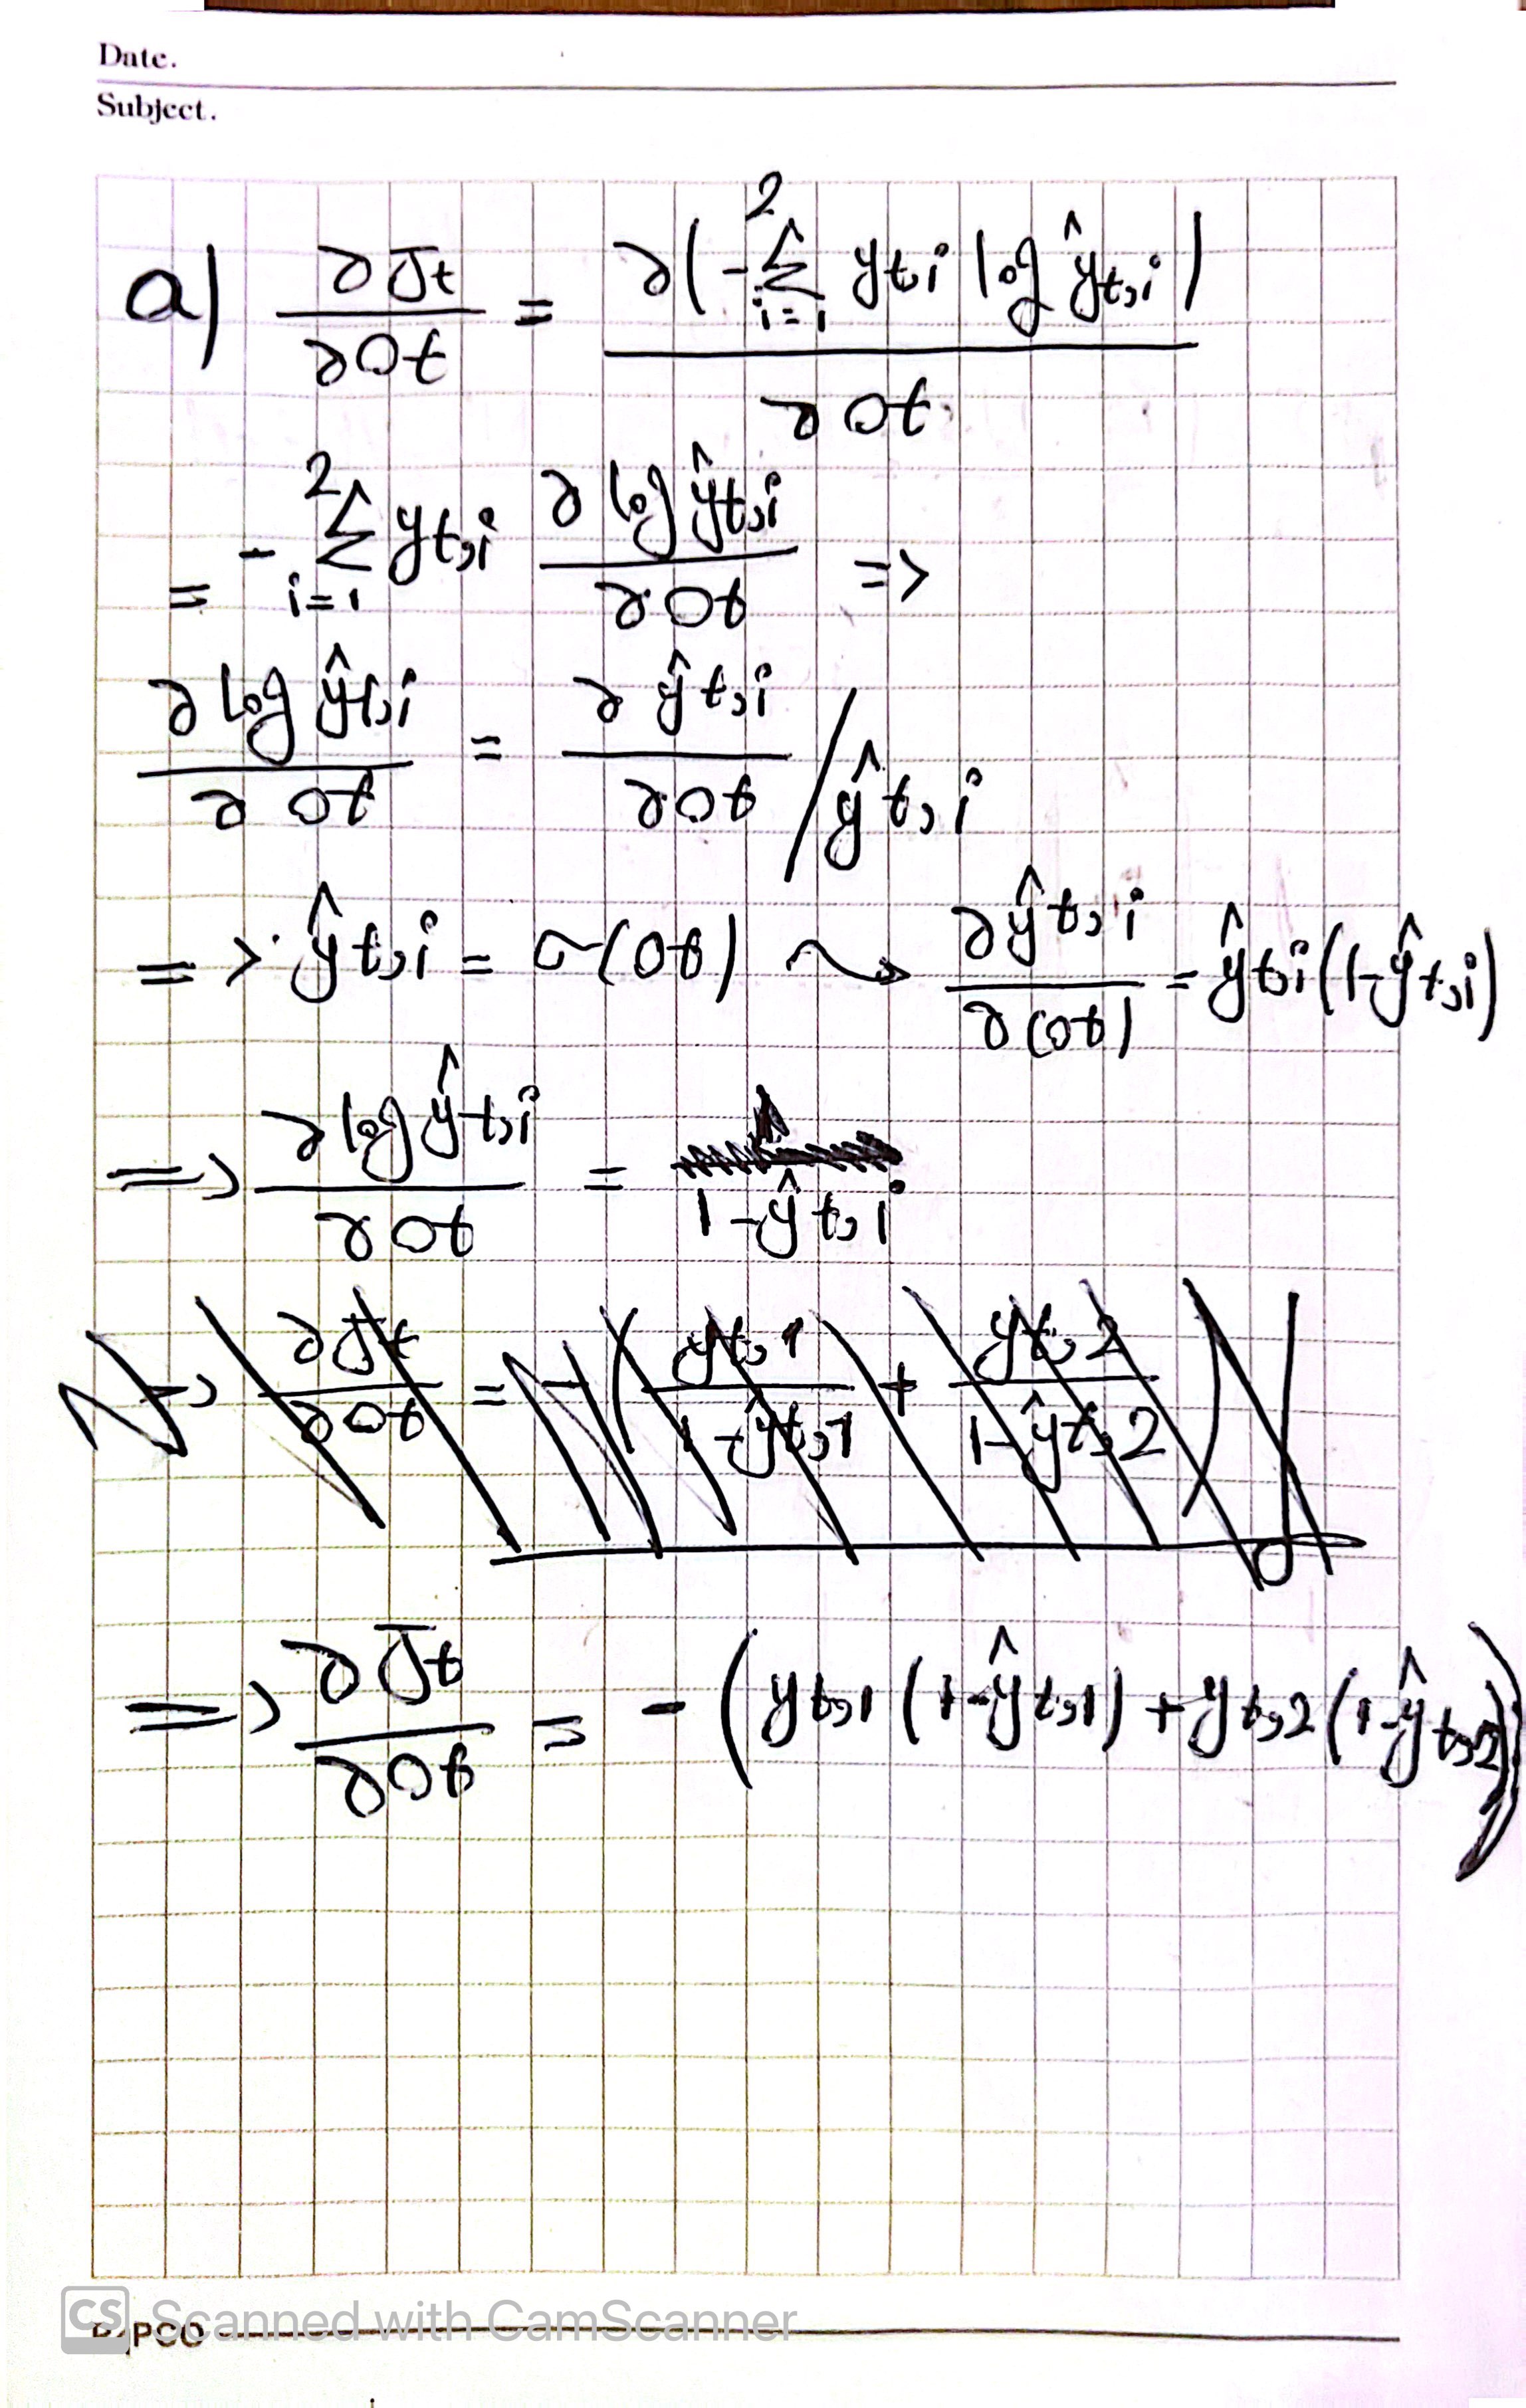 Date.
Subject.
a) ∂Jt/∂Ot = ∂(-∑_{i=1}^{2} yt,i log ŷt,i)/∂Ot
= -∑_{i=1}^{2} yt,i ∂log ŷt,i/∂Ot =>
∂log ŷt,i/∂Ot = ∂ŷt,i/∂Ot / ŷt,i
=> ŷt,i = σ(Ot) ⤳ ∂ŷt,i/∂(Ot) = ŷt,i(1-ŷt,i)
=> ∂log ŷt,i/∂Ot = 1-ŷt,i
=> ∂Jt/∂Ot = -(yt,1/(1-ŷt,1) + yt,2/(1-ŷt,2))
=> ∂Jt/∂Ot = -(yt,1(1-ŷt,1)+yt,2(1-ŷt,2))
CS Scanned with CamScanner
PCO